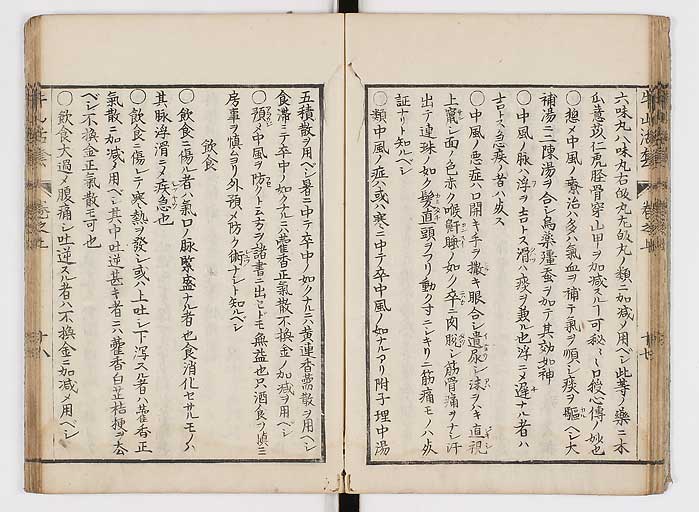 六味丸八味丸右皈丸左皈丸ノ類ニ加減ノ用ベシ此等ノ藥ニ木
瓜薏苡仁虎脛骨穿山甲ヲ加減スルヿ可秘〻〻口授心傳ノ妙也
○揔メ中風ノ療治ハ多ハ氣血ヲ補テ氣ヲ順シ痰ヲ驅ベシ大
補湯ニ二陳湯ヲ合シ烏藥殭蚕ヲ加テ其効如神
○中風ノ脉ハ浮ヲ吉トス滑ハ痰ヲ兼ル也浮ニメ遲ナル者ハ
吉トス急疾ノ者ハ必ス
○中風ノ悪症ハ口開キ手ヲ撒キ眼合シ遺尿シ沫ヲハキ直視
上竄シ面ノ色赤ク喉鼾睡ノ如ク卒ニ肉脱シ筋骨痛ヲナシ汗
出テ連珠ノ如ク髪直頭ヲフリ動クヿニシキリニ筋痛モノハ必
証ナリト知ルベシ
○類中風ノ症ハ或ハ寒ニ中テ卒中風ノ如ナルアリ附子理中湯
五積散ヲ用ベシ暑ニ中テ卒中ノ如クナルニハ黄連香薷散ヲ用ベシ
食滯ニテ卒中ノ如クナルニハ藿香正氣散不換金ノ加減ヲ用ベシ
○預メ中風ヲ防クト云方ヲ諸書ニ出セトモ無益也只酒食ヲ慎ミ
房事ヲ慎ヨリ外預メ防ク術ナシト知ルベシ
飲食
○飲食ニ傷ル者ハ氣口ノ脉緊盛ナル者也食消化セサルモノハ
其脉浮滑ニメ疾急也
○飲食ニ傷レテ寒熱ヲ發シ或ハ上吐シ下瀉ス者ハ藿香正
氣散ニ加減メ用ベシ其中吐逆甚キ者ニハ藿香白芷桔梗ヲ去
ベシ不換金正氣散モ可也
○飲食太過メ腹痛シ吐逆スル者ハ不換金ニ加減メ用ベシ